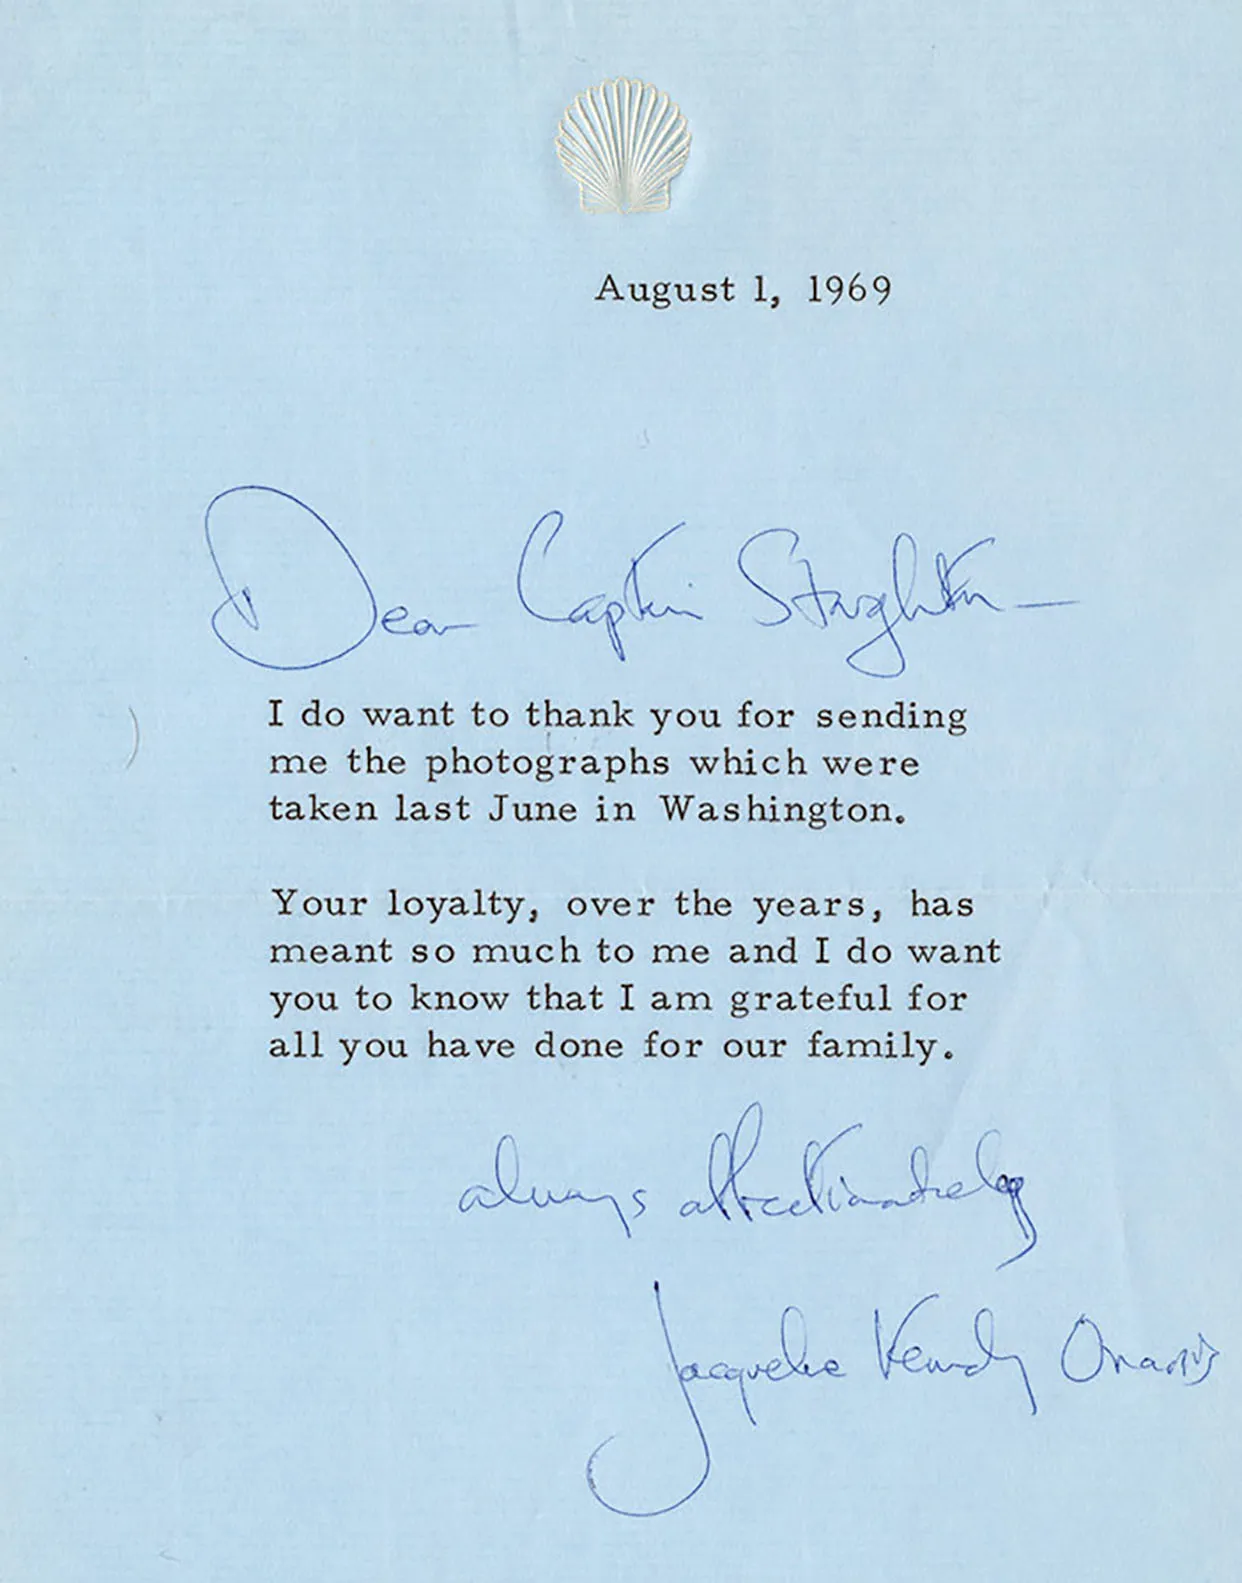 August 1, 1969
Dear Captain Stoughton —
I do want to thank you for sending
me the photographs which were
taken last June in Washington.
Your loyalty, over the years, has
meant so much to me and I do want
you to know that I am grateful for
all you have done for our family.
always affectionately
Jacqueline Kennedy Onassis